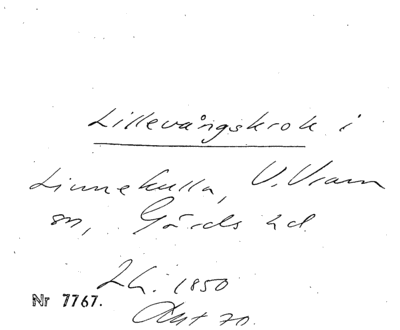 Lillevångskrok i
Linnekulla, V. Vram
sn, Gärds hd.
Lh. 1850
Nr 7767.
Ant 70.